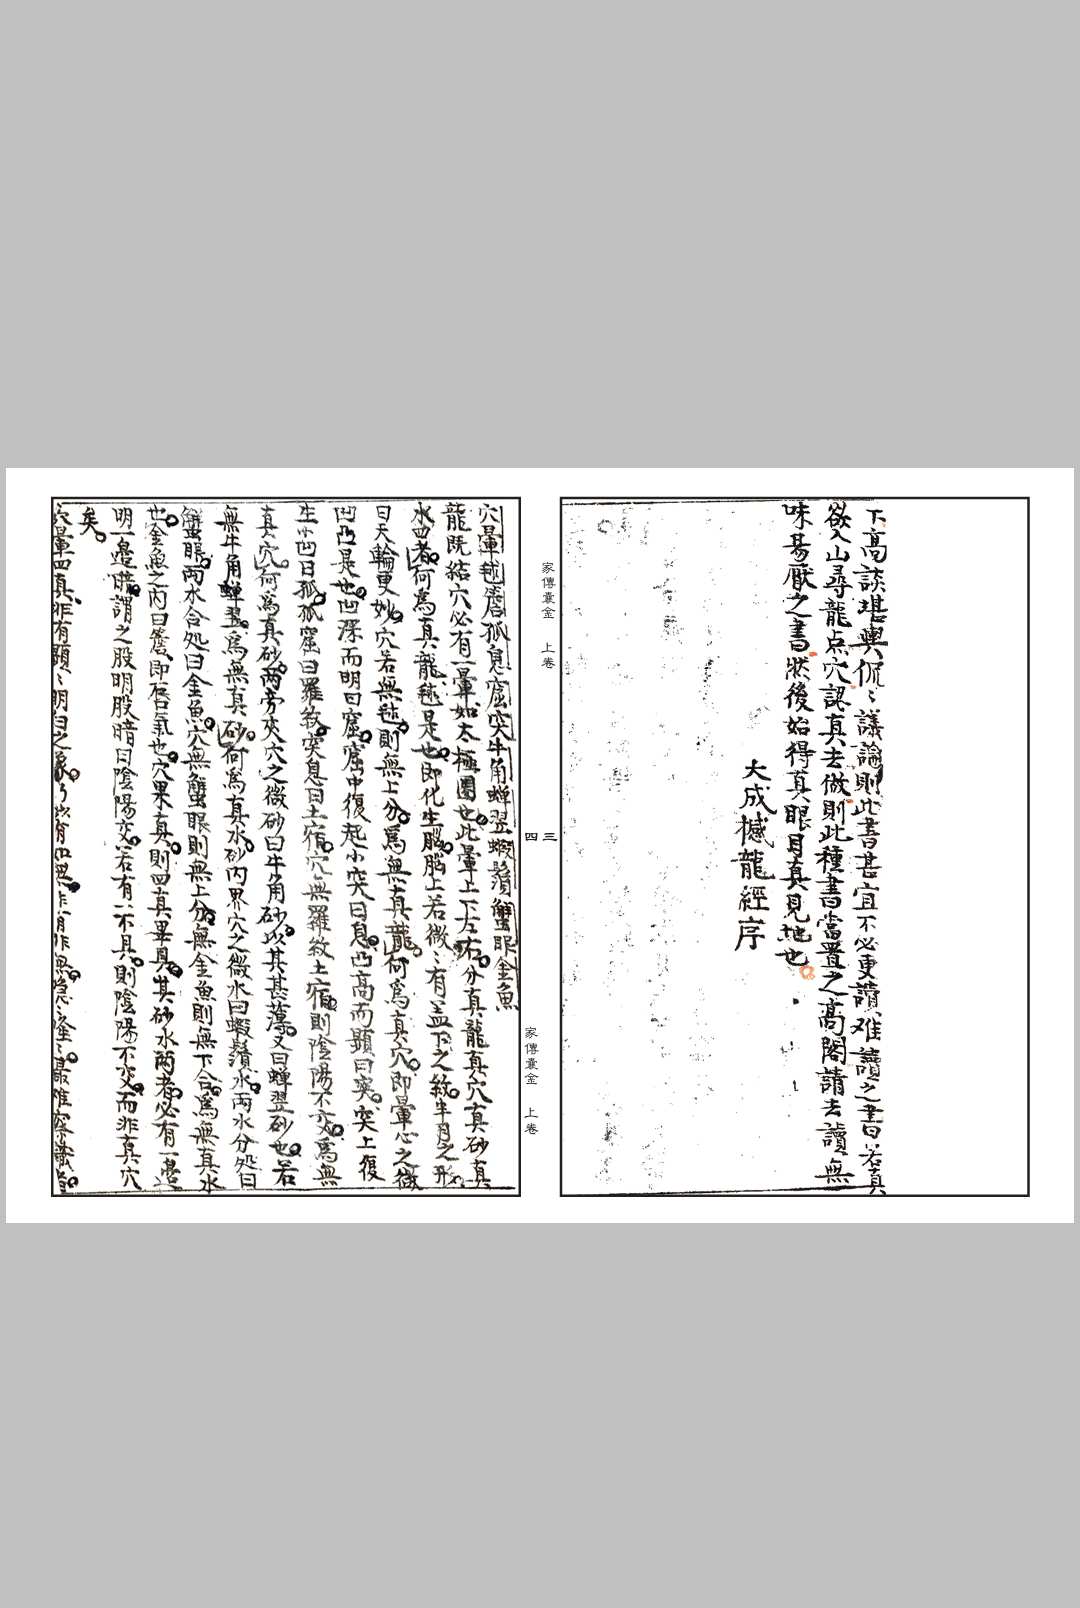 下高談堪輿侃〻議論則此書甚宜不必更讀难讀之書若真
欲入山尋龍点穴認真去做則此種書當置之高閣請去讀無
味易厭之書狀後始得莫眼目真見地也
大成撼龍經序
家傳囊金 上卷
三
四
家傳囊金 上卷
穴暈毬簷孤息窟突牛角蟬翌蝦鬚蟹眼金魚
龍既結穴必有一暈如太極圈也此暈上下左右分真龍真穴真砂真
水四者何為真龍毬是也即化生腦腦上若微〻有盖下之紋半月之形
曰天輪更妙穴若無毬則無上分為無真龍何為真穴即暈心之微
凹凸是也凹深而明曰窟窟中復起小突曰息凸高而顯曰突突上復
生小凹曰孤孤窟曰羅紋突息曰土宿穴無羅紋土宿則陰陽不交為無
真穴何為真砂两旁夾穴之微砂曰牛角砂以其甚薄又曰蟬翌砂也若
無牛角蟬翌為無真砂何為真水砂内界穴之微水曰蝦鬚水两水分処曰
蟹眼两水合処曰金魚穴無蟹眼則無上分無金魚則無下合為無真水
也金魚之内曰簷即唇氣也穴果真則四真畢具其砂水兩者必有一邉
明一邉暗謂之股明股暗曰陰陽交若有一不具則陰陽不交而非真穴
矣
穴暈四真非有顯〻明白之象乃似有似無非有非無隱〻隆〻最难察識